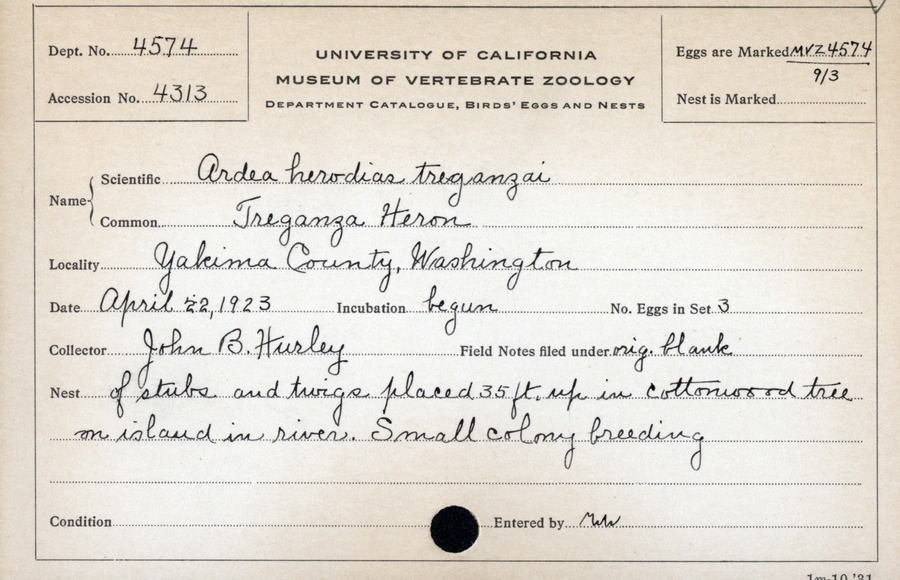 Dept. No. 4574
Accession No. 4313
UNIVERSITY OF CALIFORNIA
MUSEUM OF VERTEBRATE ZOOLOGY
DEPARTMENT CATALOGUE, BIRDS' EGGS AND NESTS
Eggs are Marked MVZ 4574
9/3
Nest is Marked
Name
Scientific Ardea herodias treganzai
Common Treganza Heron
Locality Yakima County, Washington
Date April 22, 1923 Incubation begun No. Eggs in Set 3
Collector John B. Hurley Field Notes filed under orig. blank
Nest of stubs and twigs placed 35 ft. up in cottonwood tree
on island in river. Small colony breeding
Condition Entered by
1m-10,'31